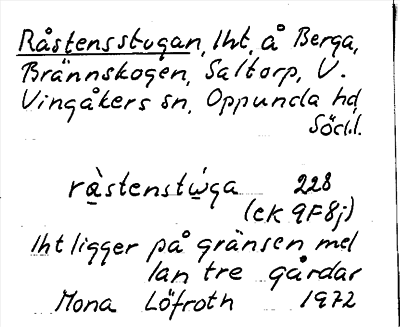 Råstensstugan, lht, å Berga,
Brännskogen, Saltorp, V.
Vingåkers sn, Oppunda hd,
Södl.
ràstenstẁga 228
(ek 9F8j)
lht ligger på gränsen mel
lan tre gårdar
Mona Löfroth 1972